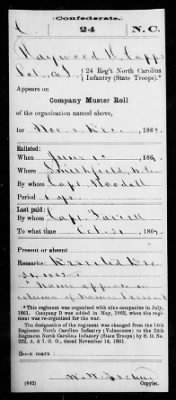 Confederate.
24 N. C.
Haywood H. Capps
Pvt., Co. I, 24 Reg't North Carolina
Infantry (State Troops).*
Appears on
Company Muster Roll
of the organization named above,
for Nov. & Dec., 186
Enlisted:
When June 1, 186
Where Smithfield, N.C.
By whom Capt. Woodall
Period
Last paid:
By whom Capt.
To what time Oct. 31, 186
Present or absent
Remarks: Dec.
31,
Name appears in
column of
*This regiment was organized with nine companies in July,
1861. Company D was added in May, 1862, when the regi-
ment was re-organized for the war.
The designation of the regiment was changed from the 14th
Regiment North Carolina Infantry (Volunteers) to the 24th
Regiment North Carolina Infantry (State Troops) by S. O. No.
222, A. & I. G. O., dated November 14, 1861.
Book mark:
(642) Copyist.